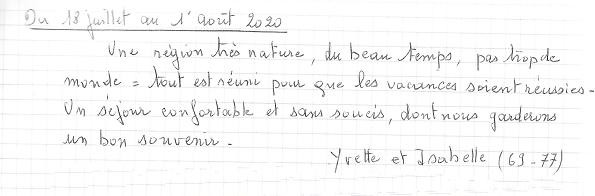 Du 18 juillet au 1° août 2020
Une région très nature, du beau temps, pas trop de
monde = tout est réuni pour que les vacances soient réussies.
Un séjour confortable et sans soucis, dont nous garderons
un bon souvenir.
Yvette et Isabelle (69-77)